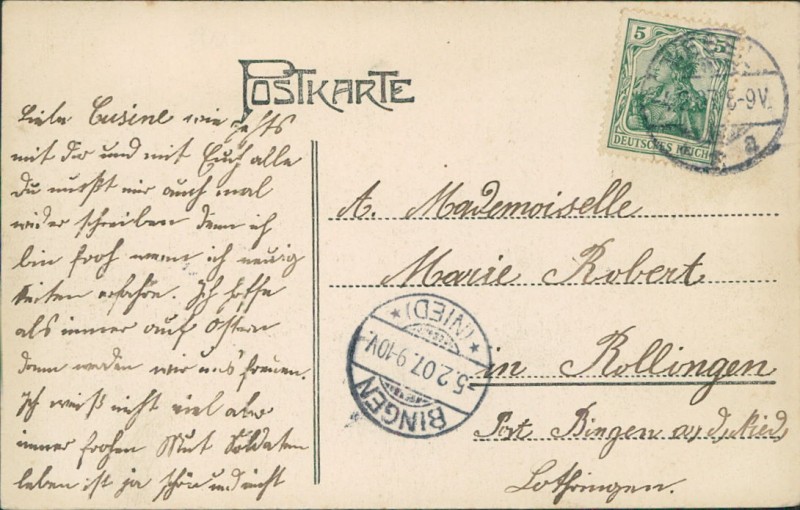 POSTKARTE
5 5
DEUTSCHES REICH
5-9V.
a
Liebe Cusine wie gehts
mit Dir und mit Euch alle
Du mußt mir auch mal
wider schreiben denn ich
bin froh wenn ich neuig
keiten erfahre. Ich hoffe
als immer auf Ostern
dann werden wir uns freuen.
Ich weiß nicht viel aber
immer frohen Mut Soldaten
leben ist ja schön und nicht
A. Mademoiselle
Marie Robert
in Rollingen
Post Bingen a, d, Nied,
Lothringen.
BINGEN
5.2.07.9-10V.
*(NIED)*